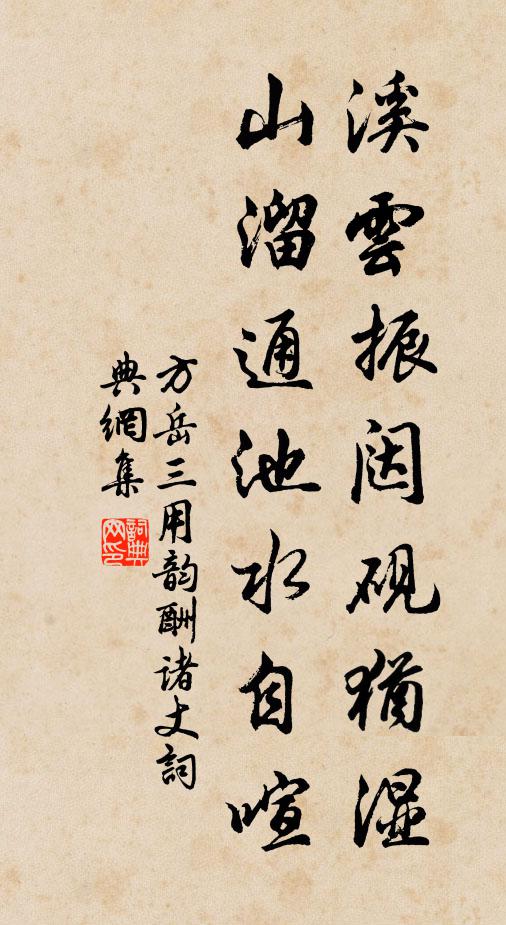 溪雲振闼硯猶濕
山溜通池水自喧
方岳三用韵酬诸丈詞
典網集
詞典網印